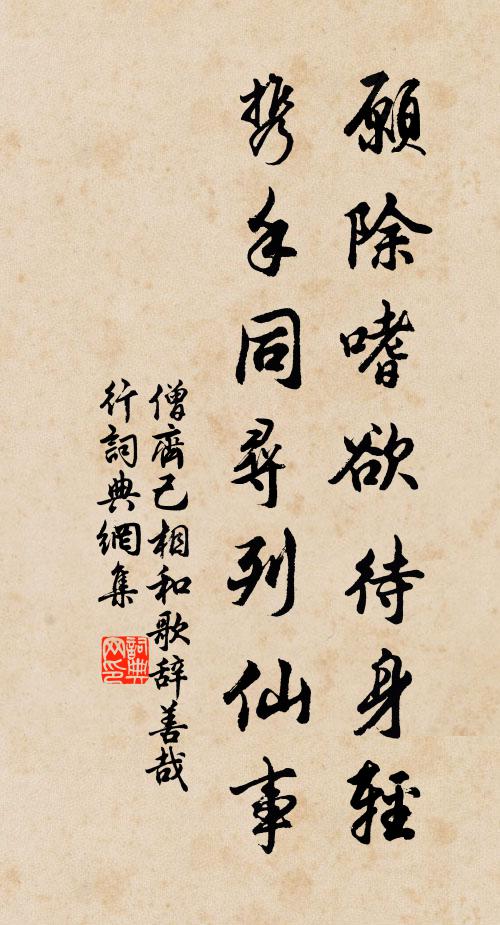 願除嗜欲待身輕
携手同尋列仙事
僧齊己相和歌辞善哉
行詞典網集
詞典
网印